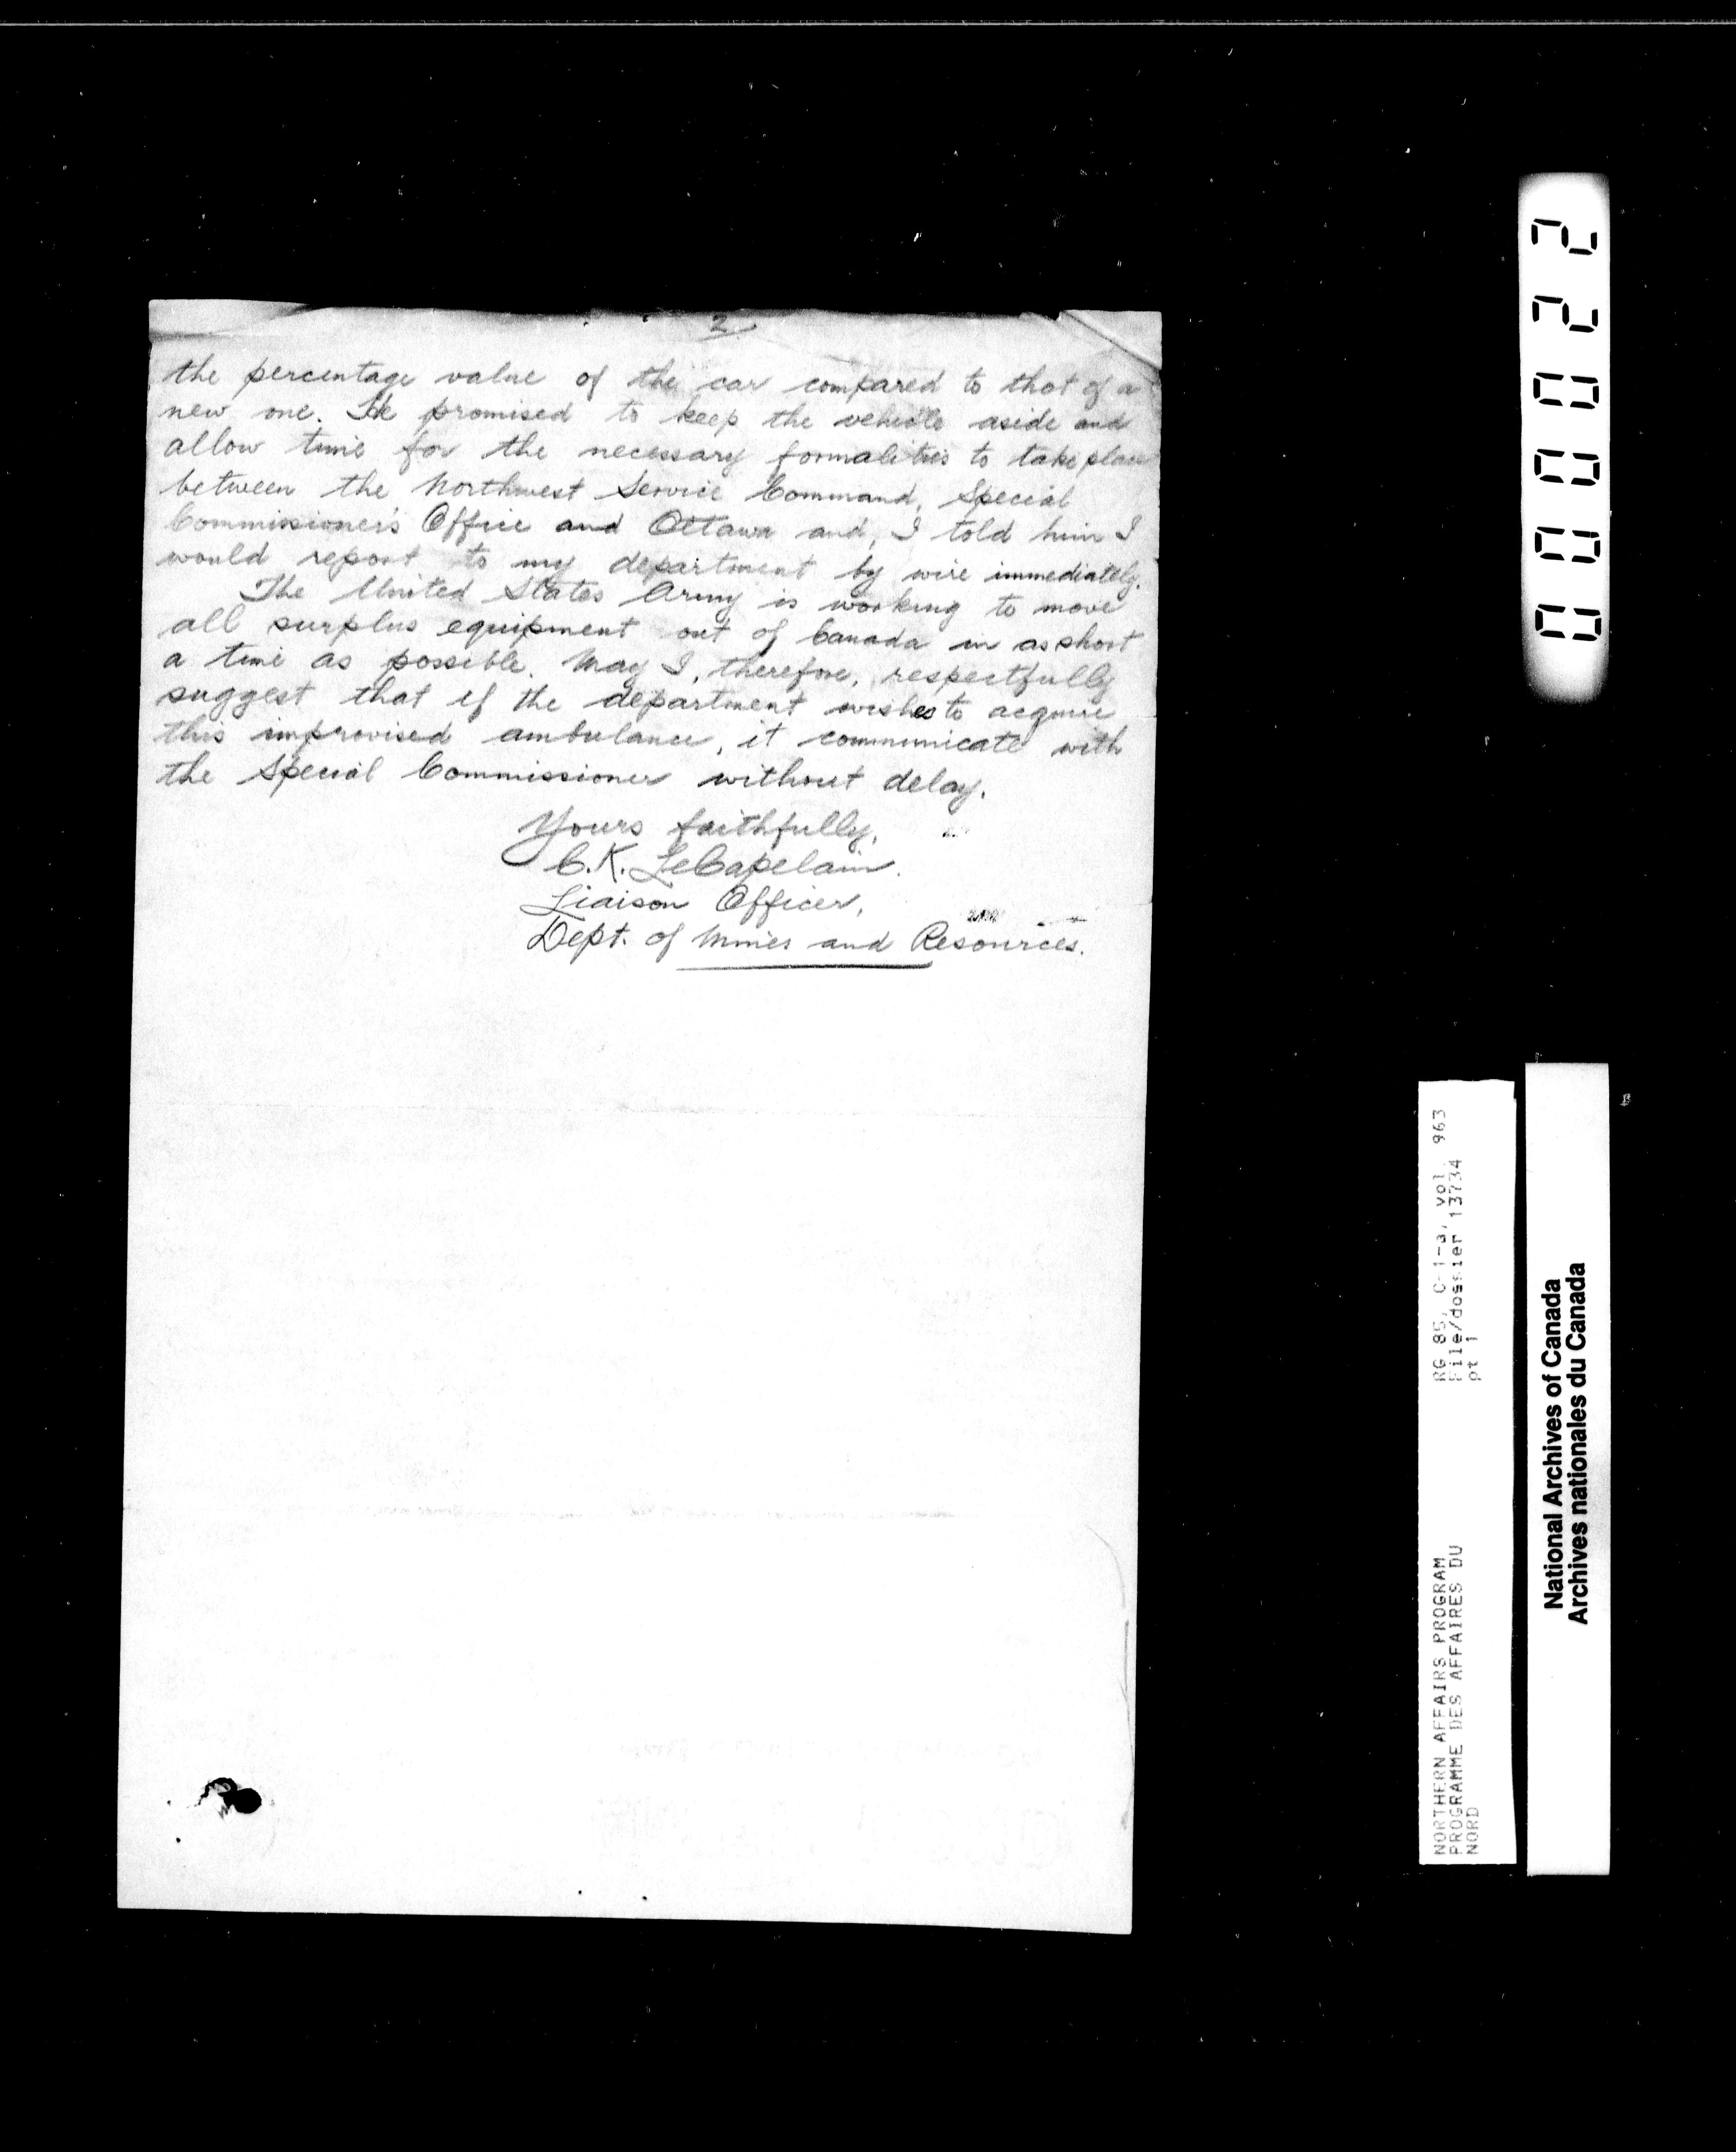 2
the percentage value of the car compared to that of a
new one. He promised to keep the vehicle aside and
allow time for the necessary formalities to take place
between the Northwest Service Command, Special
Commissioner's Office and Ottawa and, I told him I
would report to my department by wire immediately.
The United States Army is working to move
all surplus equipment out of Canada in as short
a time as possible. May I, therefore, respectfully
suggest that if the department wishes to acquire
this improvised ambulance, it communicate with
the Special Commissioner without delay.
Yours faithfully,
C.K. LeCapelain.
Liaison Officer,
Dept. of Mines and Resources.
000022
RG 85, C-1-a, vol. 963
File/dossier 13734
pt 1
NORTHERN AFFAIRS PROGRAM
PROGRAMME DES AFFAIRES DU
NORD
National Archives of Canada
Archives nationales du Canada